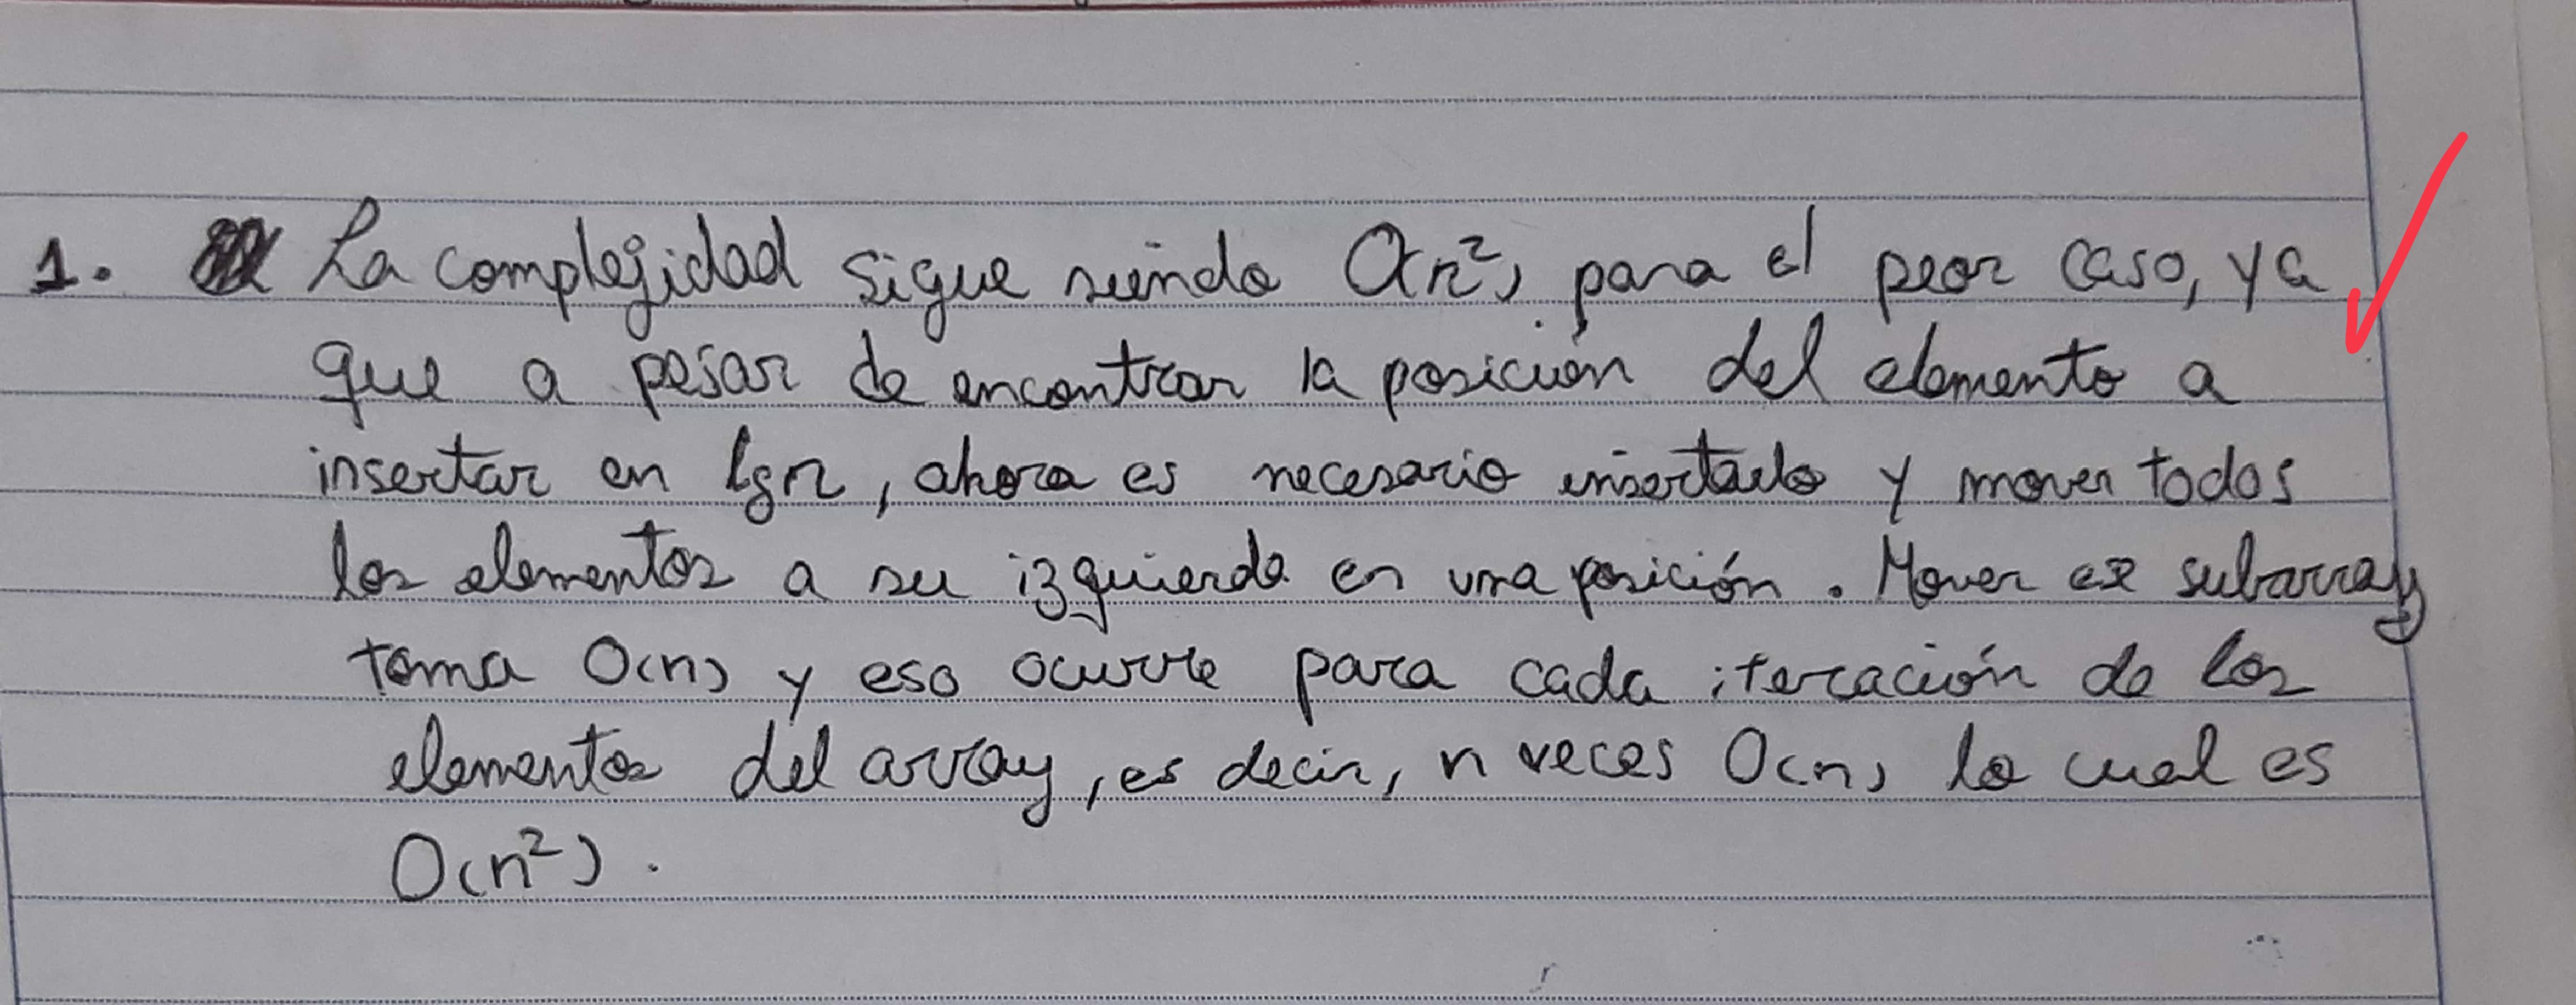 1. La complejidad sigue siendo O(n²) para el peor caso, ya
que a pesar de encontrar la posición del elemento a
insertar en lgn, ahora es necesario insertarlo y mover todos
los elementos a su izquierda en una posición. Mover ese subarray
toma O(n) y eso ocurre para cada iteración de los
elementos del array, es decir, n veces O(n) lo cual es
O(n²).